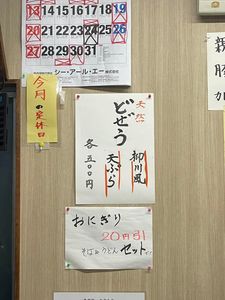 13 14 15 16 17 18 19
20 21 22 23 24 25 26
27 28 29 30 31
シー・アール・エー
今月の定休日
天然
どぜう
柳川風
天ぷら
各五〇〇円
おにぎり
20円引
そばorうどんセット
親